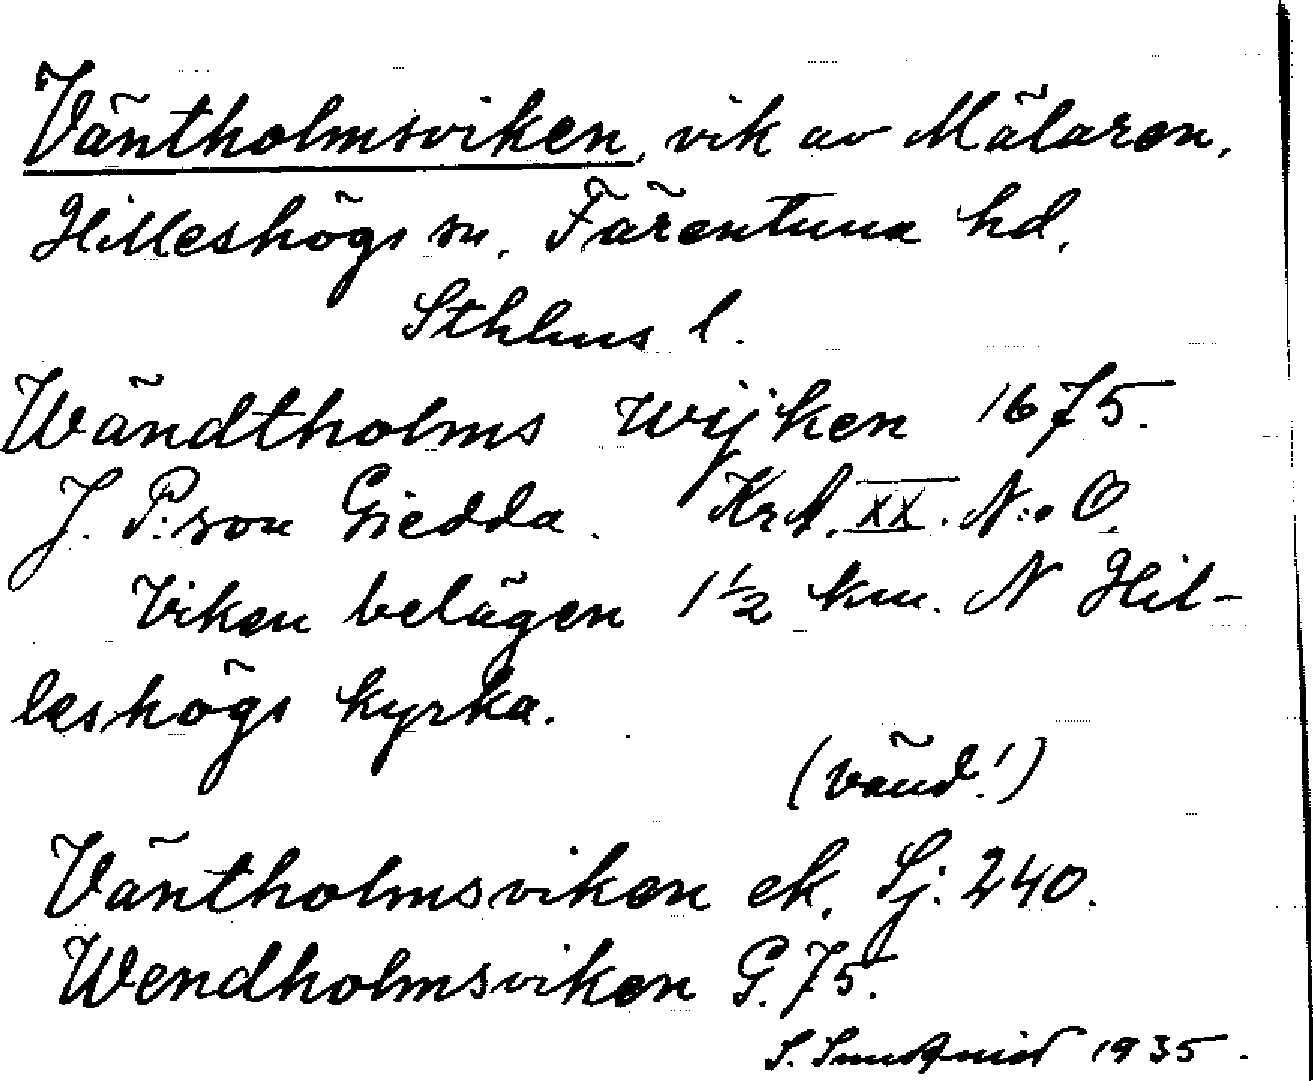 Väntholmsviken, vik av Mälaren,
Hilleshögs sn, Färentuna hd,
Sthlms l.
Wändtholms wijken 1675.
J. P:son Giedda. KrA. XX. N:o O.
Viken belägen 1½ km. N Hil-
leshögs kyrka.
(vänd!)
Väntholmsviken ek. Lj. 240.
Wendholmsviken G. 75.
S. 1935.